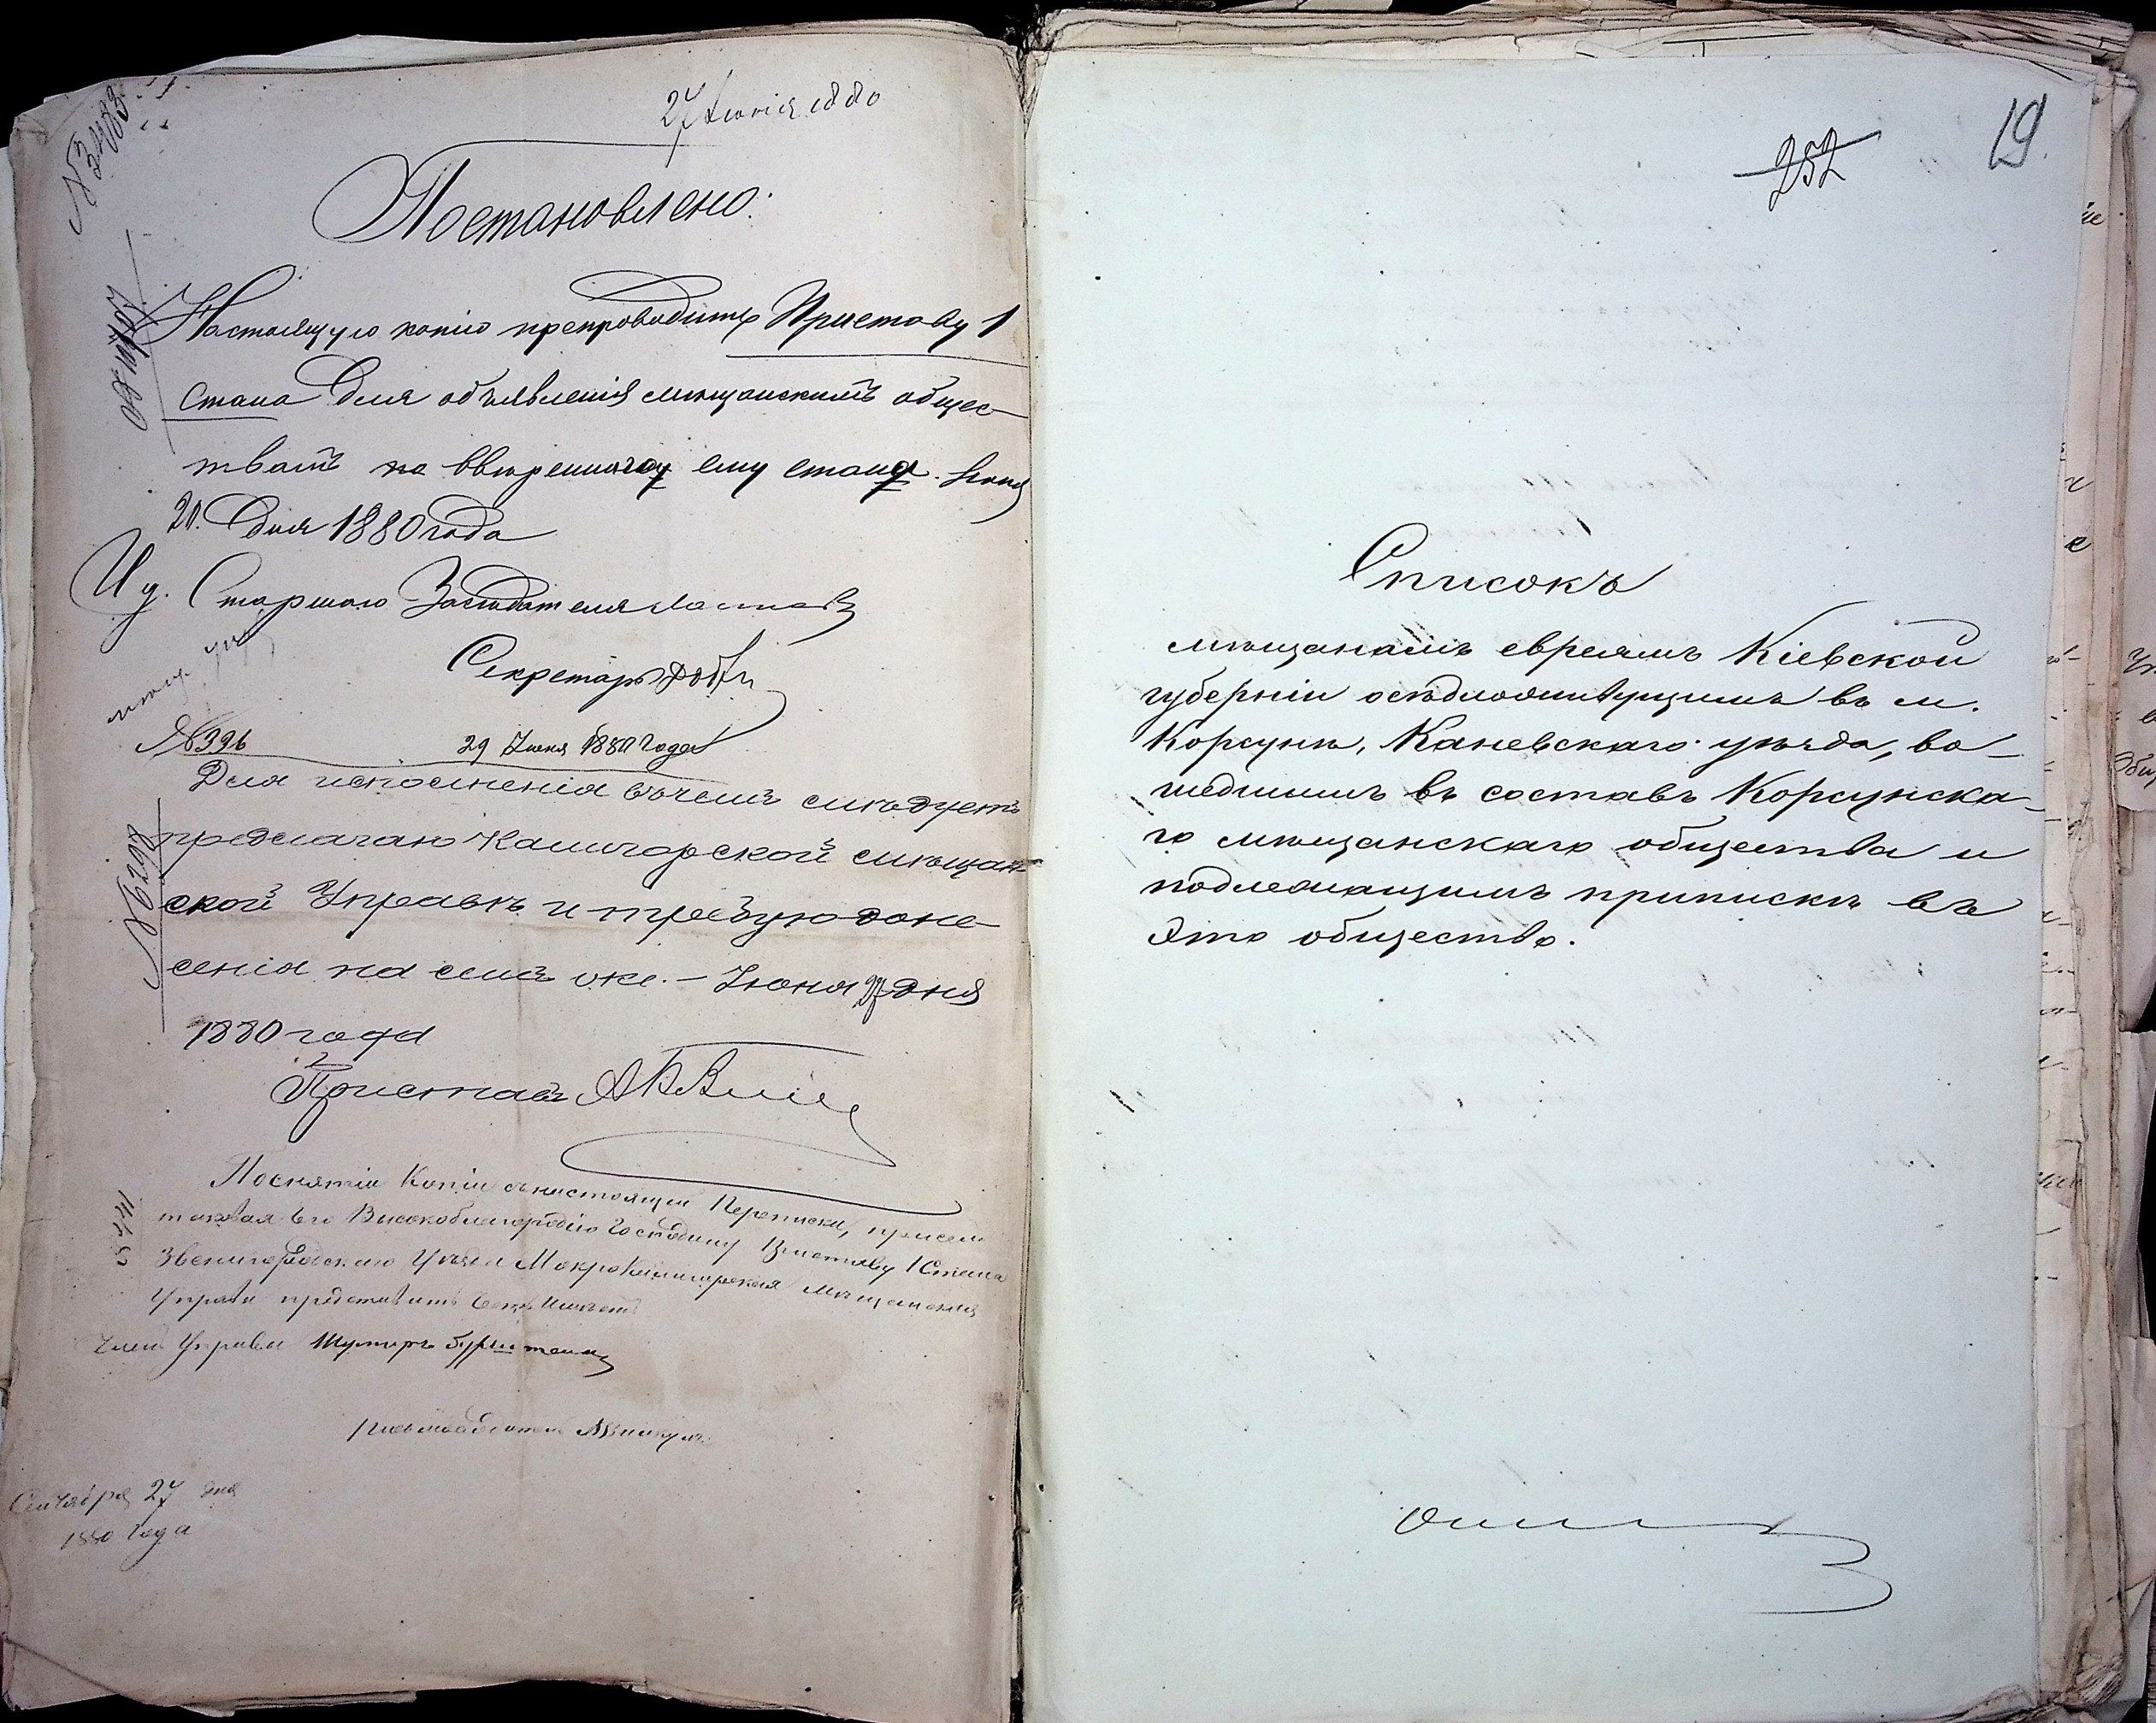 27 Іюнія 1880
№ 3483
Постановлено:
Настоящую копію препроводить Приставу 1
стана для объявленія мѣщанскимъ общес-
твамъ по ввѣренному ему стану. Іюня
20. Дня 1880 года
И д. Старшаго Засѣдателя
Секретарь
№ 396
29 Іюня 1880 года
Для исполненія въ чемъ слѣдуетъ
предлагаю Калигорской мѣщан-
ской Управѣ и требую доне-
сенія на семъ же. – Іюня 27 дня
1880 года
№ 6298
Приставъ
По снятіи Копіи съ настоящей Переписки,
таковая Его Высокоблагородію Господину Приставу 1 Стана
Звенигородскаго Уѣзда Мокрокалигорская Мѣщанская
Управа представить честь имѣетъ
Членъ Управы
Письмоводитель
Сентября 27 дня
1880 года
252
19.
Списокъ
мѣщанамъ евреямъ Кіевской
губерніи осѣдложивущимъ въ м.
Корсунѣ, Каневскаго уѣзда, во-
шедшимъ въ составъ Корсунска-
го мѣщанскаго общества и
подлежащимъ припискѣ въ
это общество.